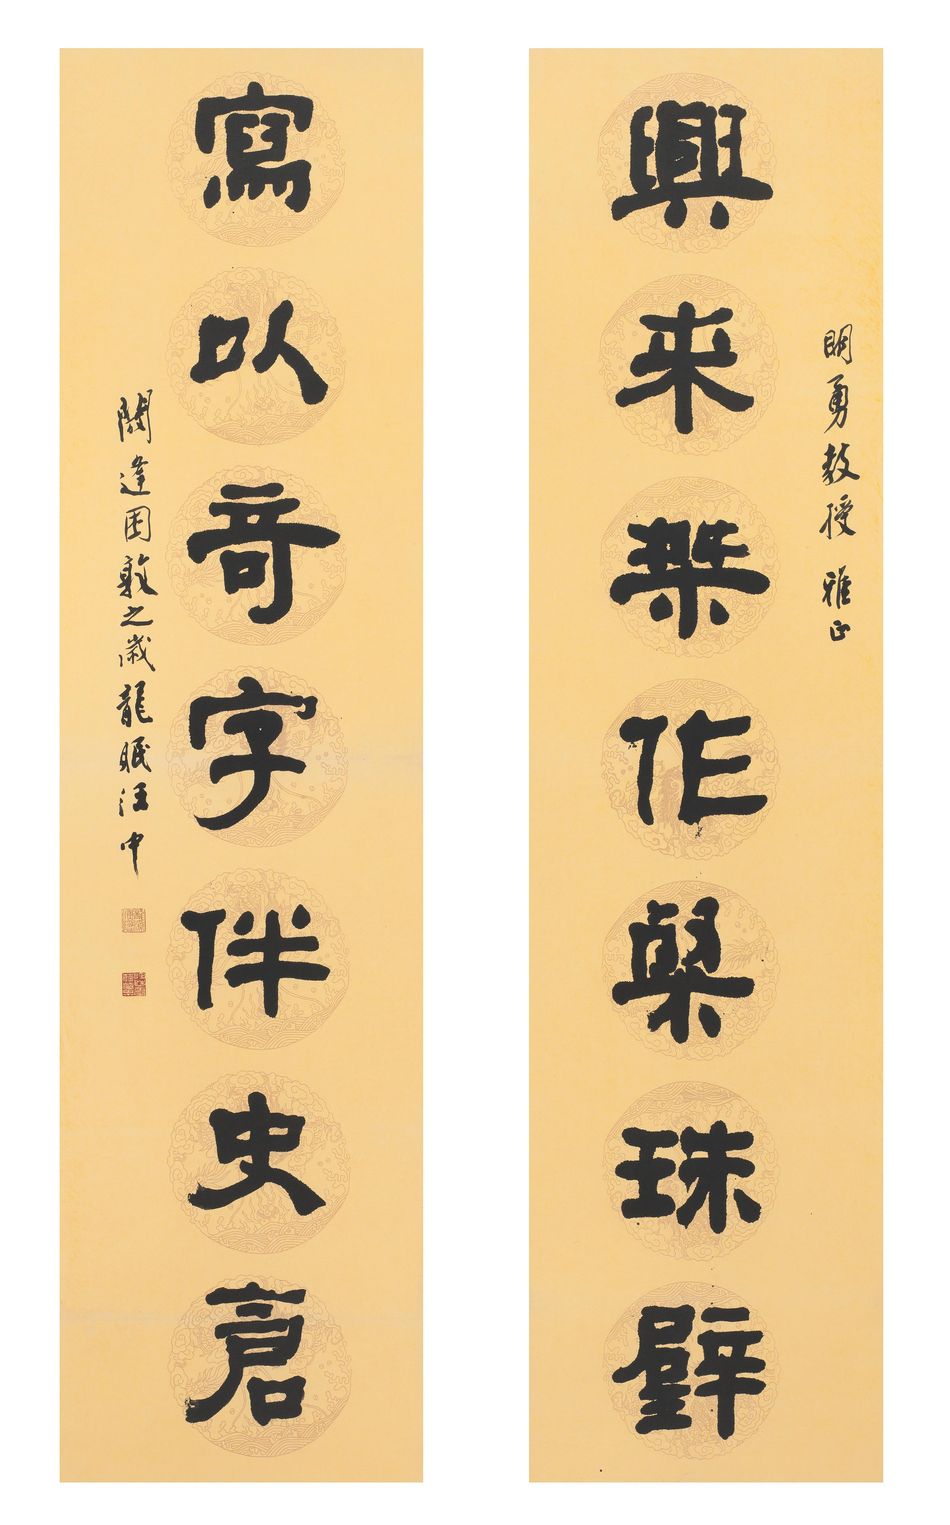 明勇教授 雅正
興来桀作槃珠璧
寫以奇字伴史倉
閼逢困敦之歲龍眠汪中